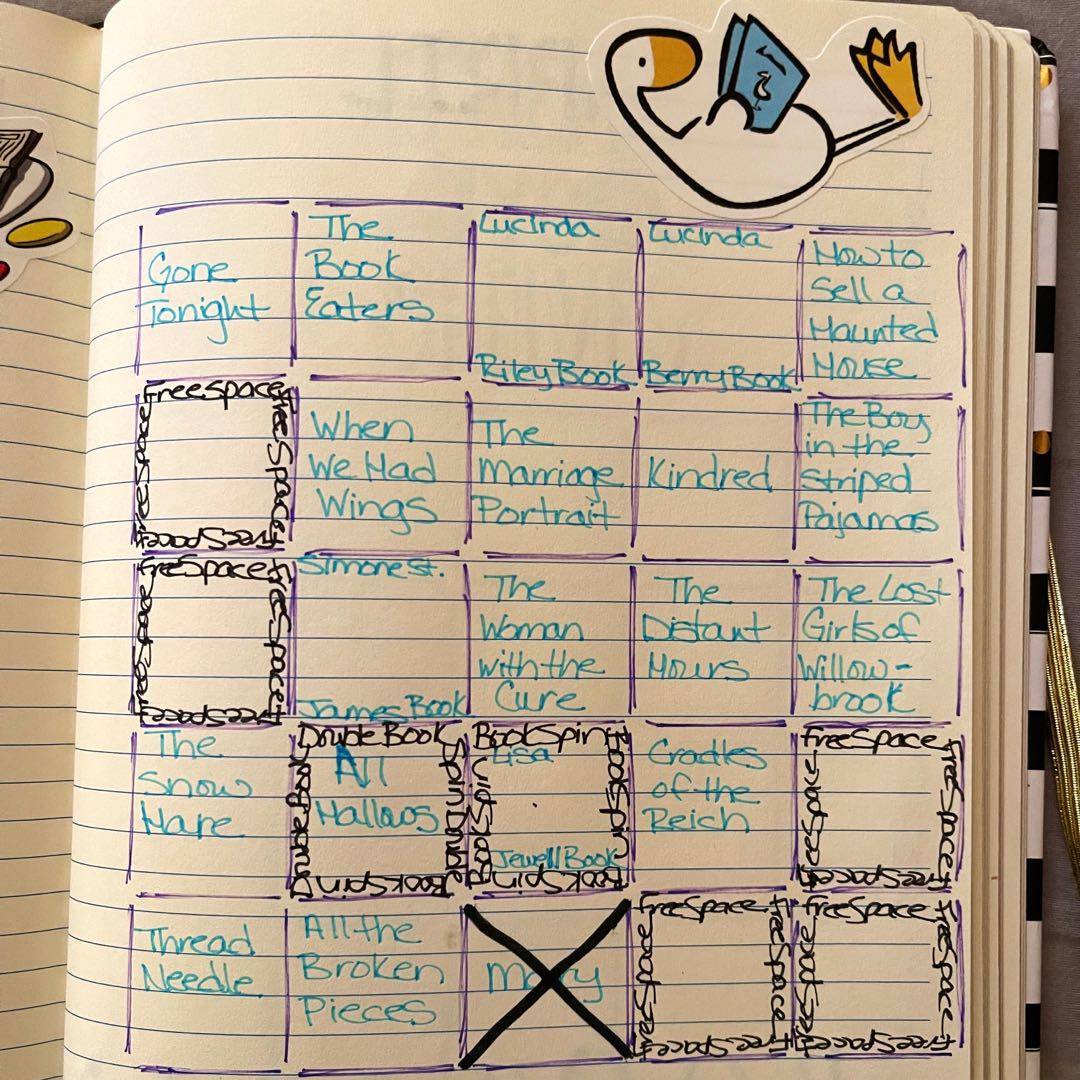 Gone
Tonight
The
Book
Eaters
Lucinda
Riley Book
Lucinda
Berry Book
How to
Sell a
Haunted
House
Free Space
Free Space
Free Space
Free Space
When
We Had
Wings
The
Marriage
Portrait
Kindred
The Boy
in the
Striped
Pajamas
Free Space
Free Space
Free Space
Free Space
Simone St.
James Book
The
Woman
with the
Cure
The
Distant
Hours
The Lost
Girls of
Willow-
brook
The
Snow
Hare
Double Book
Spin Double
Book Spin
All
Hallows
Book Spin
Book Spin
Book Spin
Book Spin
Lisa
Jewell Book
Cradles
of the
Reich
Free Space
Free Space
Free Space
Free Space
Thread
Needle
All the
Broken
Pieces
Mary
Free Space
Free Space
Free Space
Free Space
Free Space
Free Space
Free Space
Free Space